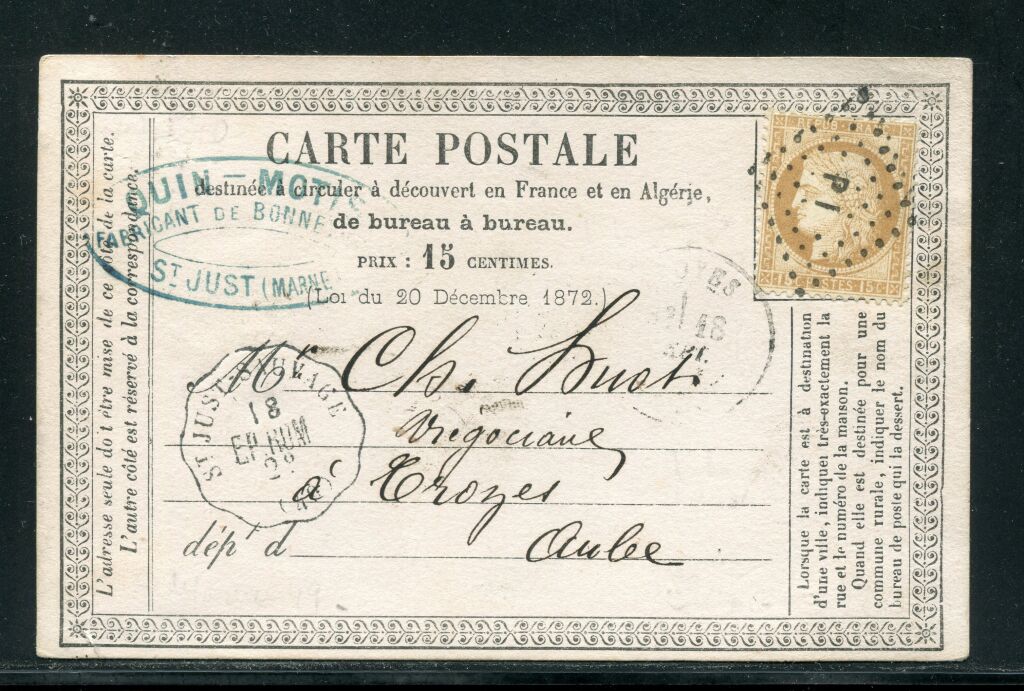 CARTE POSTALE
destinée à circuler à découvert en France et en Algérie,
de bureau à bureau.
PRIX : 15 CENTIMES.
(Loi du 20 Décembre 1872.)
QUIN - MOT
FABRICANT DE BONNE
ST JUST (MARNE
RÉPUB. FRANC
15 POSTES 15C
P
YES
18
Mr Ch. Huot
Négociant
à Troyes
dépt d
Aube
ST JUST SAUVAGE
18
L'adresse seule doit être mise de ce côté de la carte.
L'autre côté est réservé à la correspondance.
Lorsque la carte est à destination
d'une ville, indiquer très-exactement la
rue et le numéro de la maison.
Quand elle est destinée pour une
commune rurale, indiquer le nom du
bureau de poste qui la dessert.